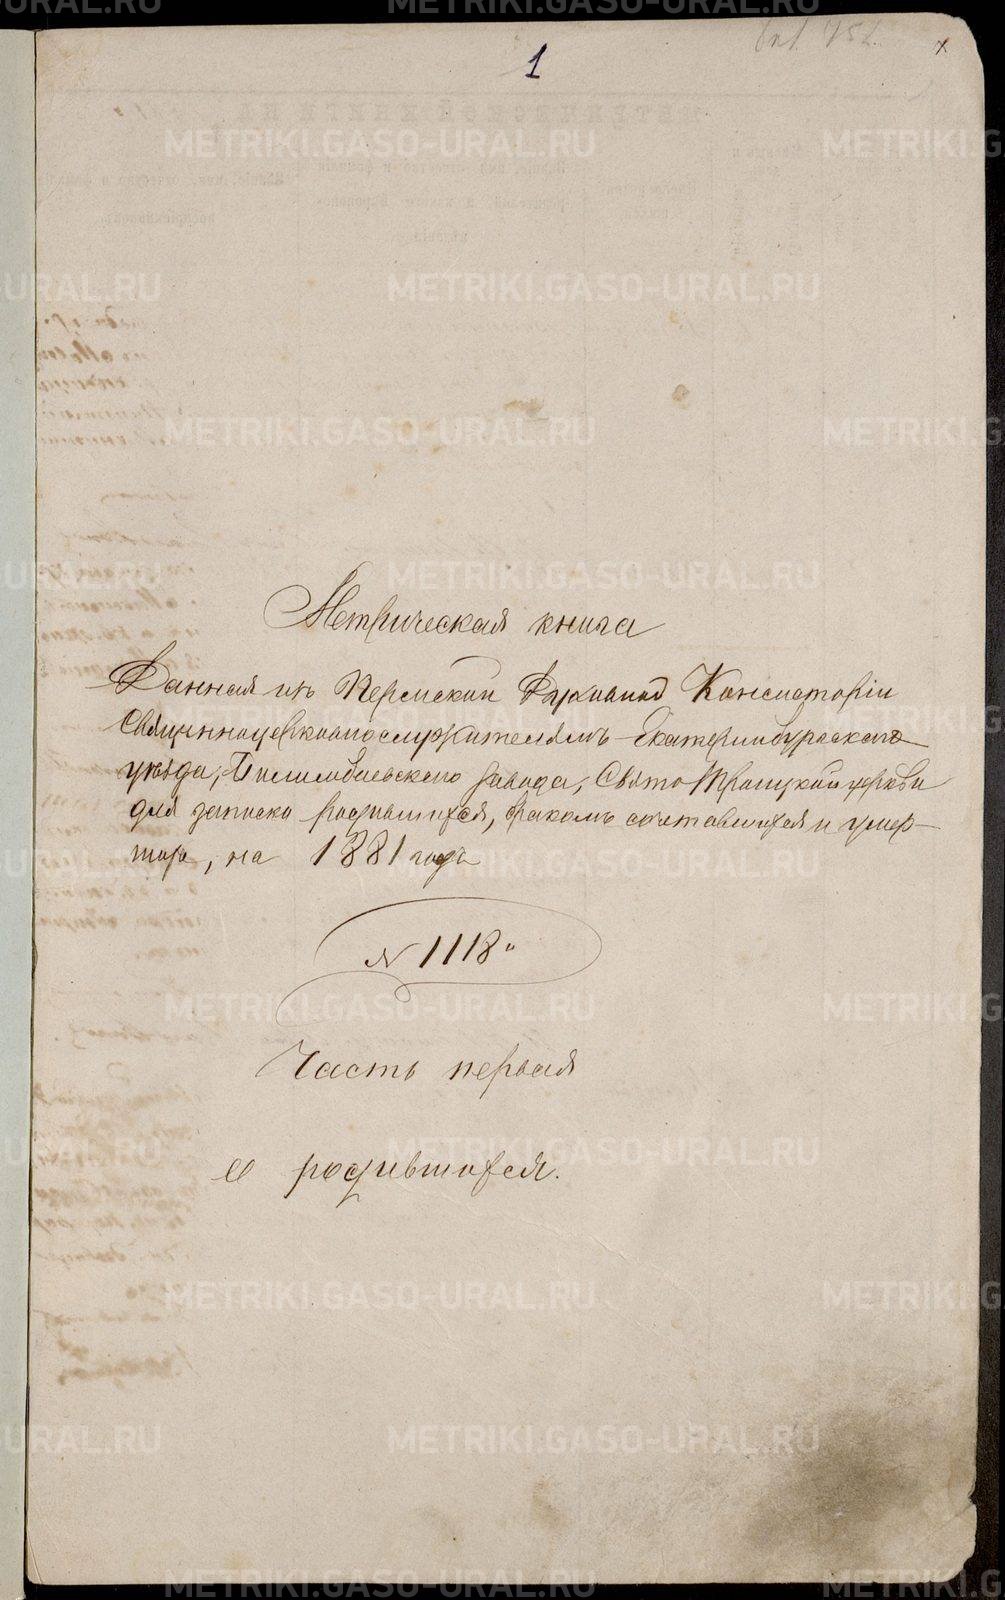 1
Метрическая книга
Данная изъ Пермской Духовной Консисторіи
Священноцерковнослужителямъ Екатеринбургскаго
уѣзда, Билимбаевскаго завода, Свято Троицкой церкви
для записки родившихся, бракомъ сочетавшихся и умер-
шихъ, на 1881 годъ
N 1118
Часть первая
о родившихся.
METRIKI.GASO-URAL.RU